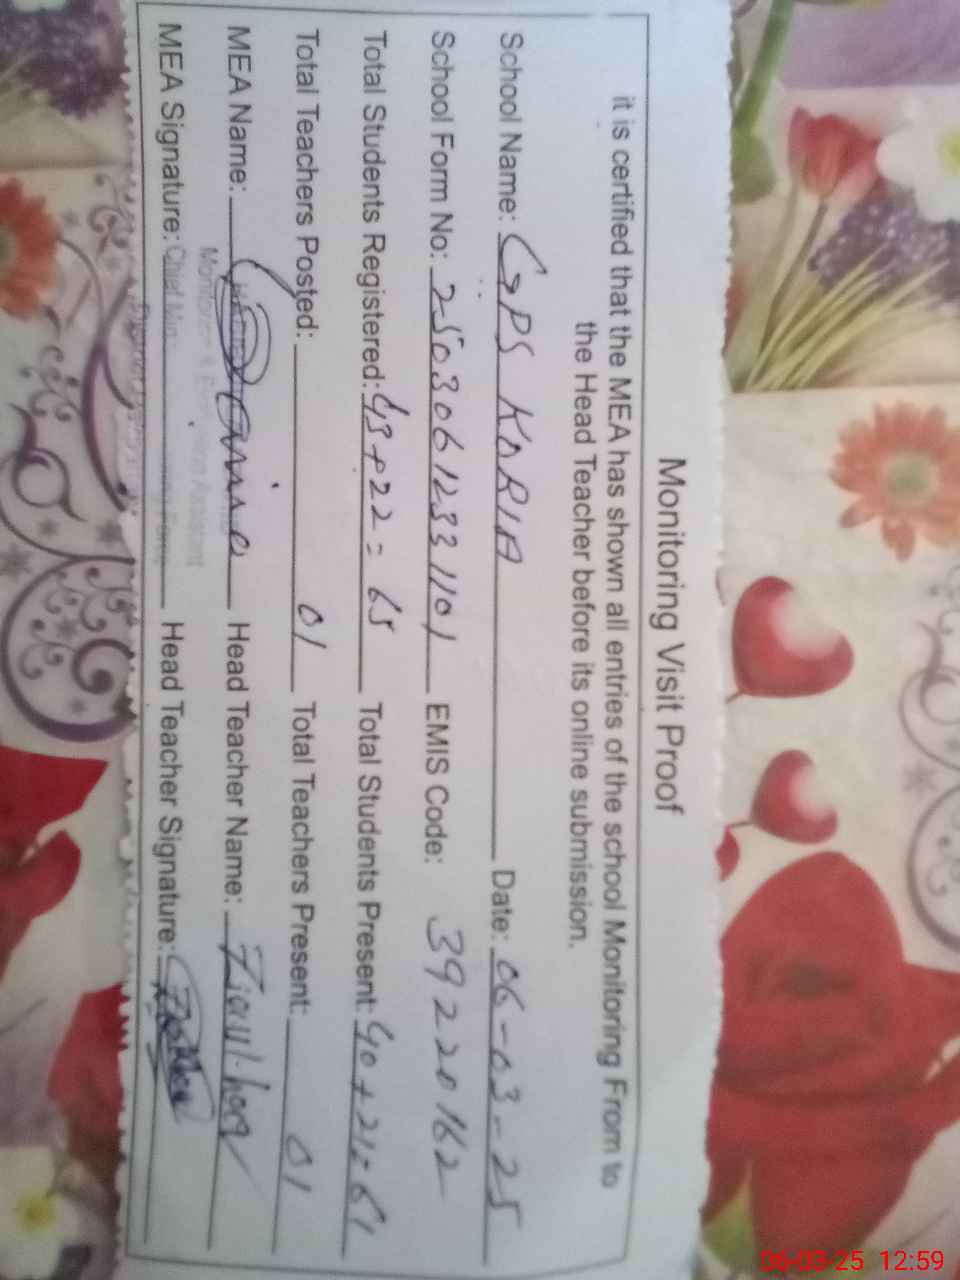 Monitoring Visit Proof
it is certified that the MEA has shown all entries of the school Monitoring From to
the Head Teacher before its online submission.
School Name: GPS KORIA Date: 06-03-25
School Form No: 2503061233 1101 EMIS Code: 39220162
Total Students Registered: 43+22= 65 Total Students Present: 40+21=61
Total Teachers Posted: 01 Total Teachers Present: 01
MEA Name: Head Teacher Name: Ziaul-haq
MEA Signature: Head Teacher Signature:
Chief Min
06-03-25 12:59